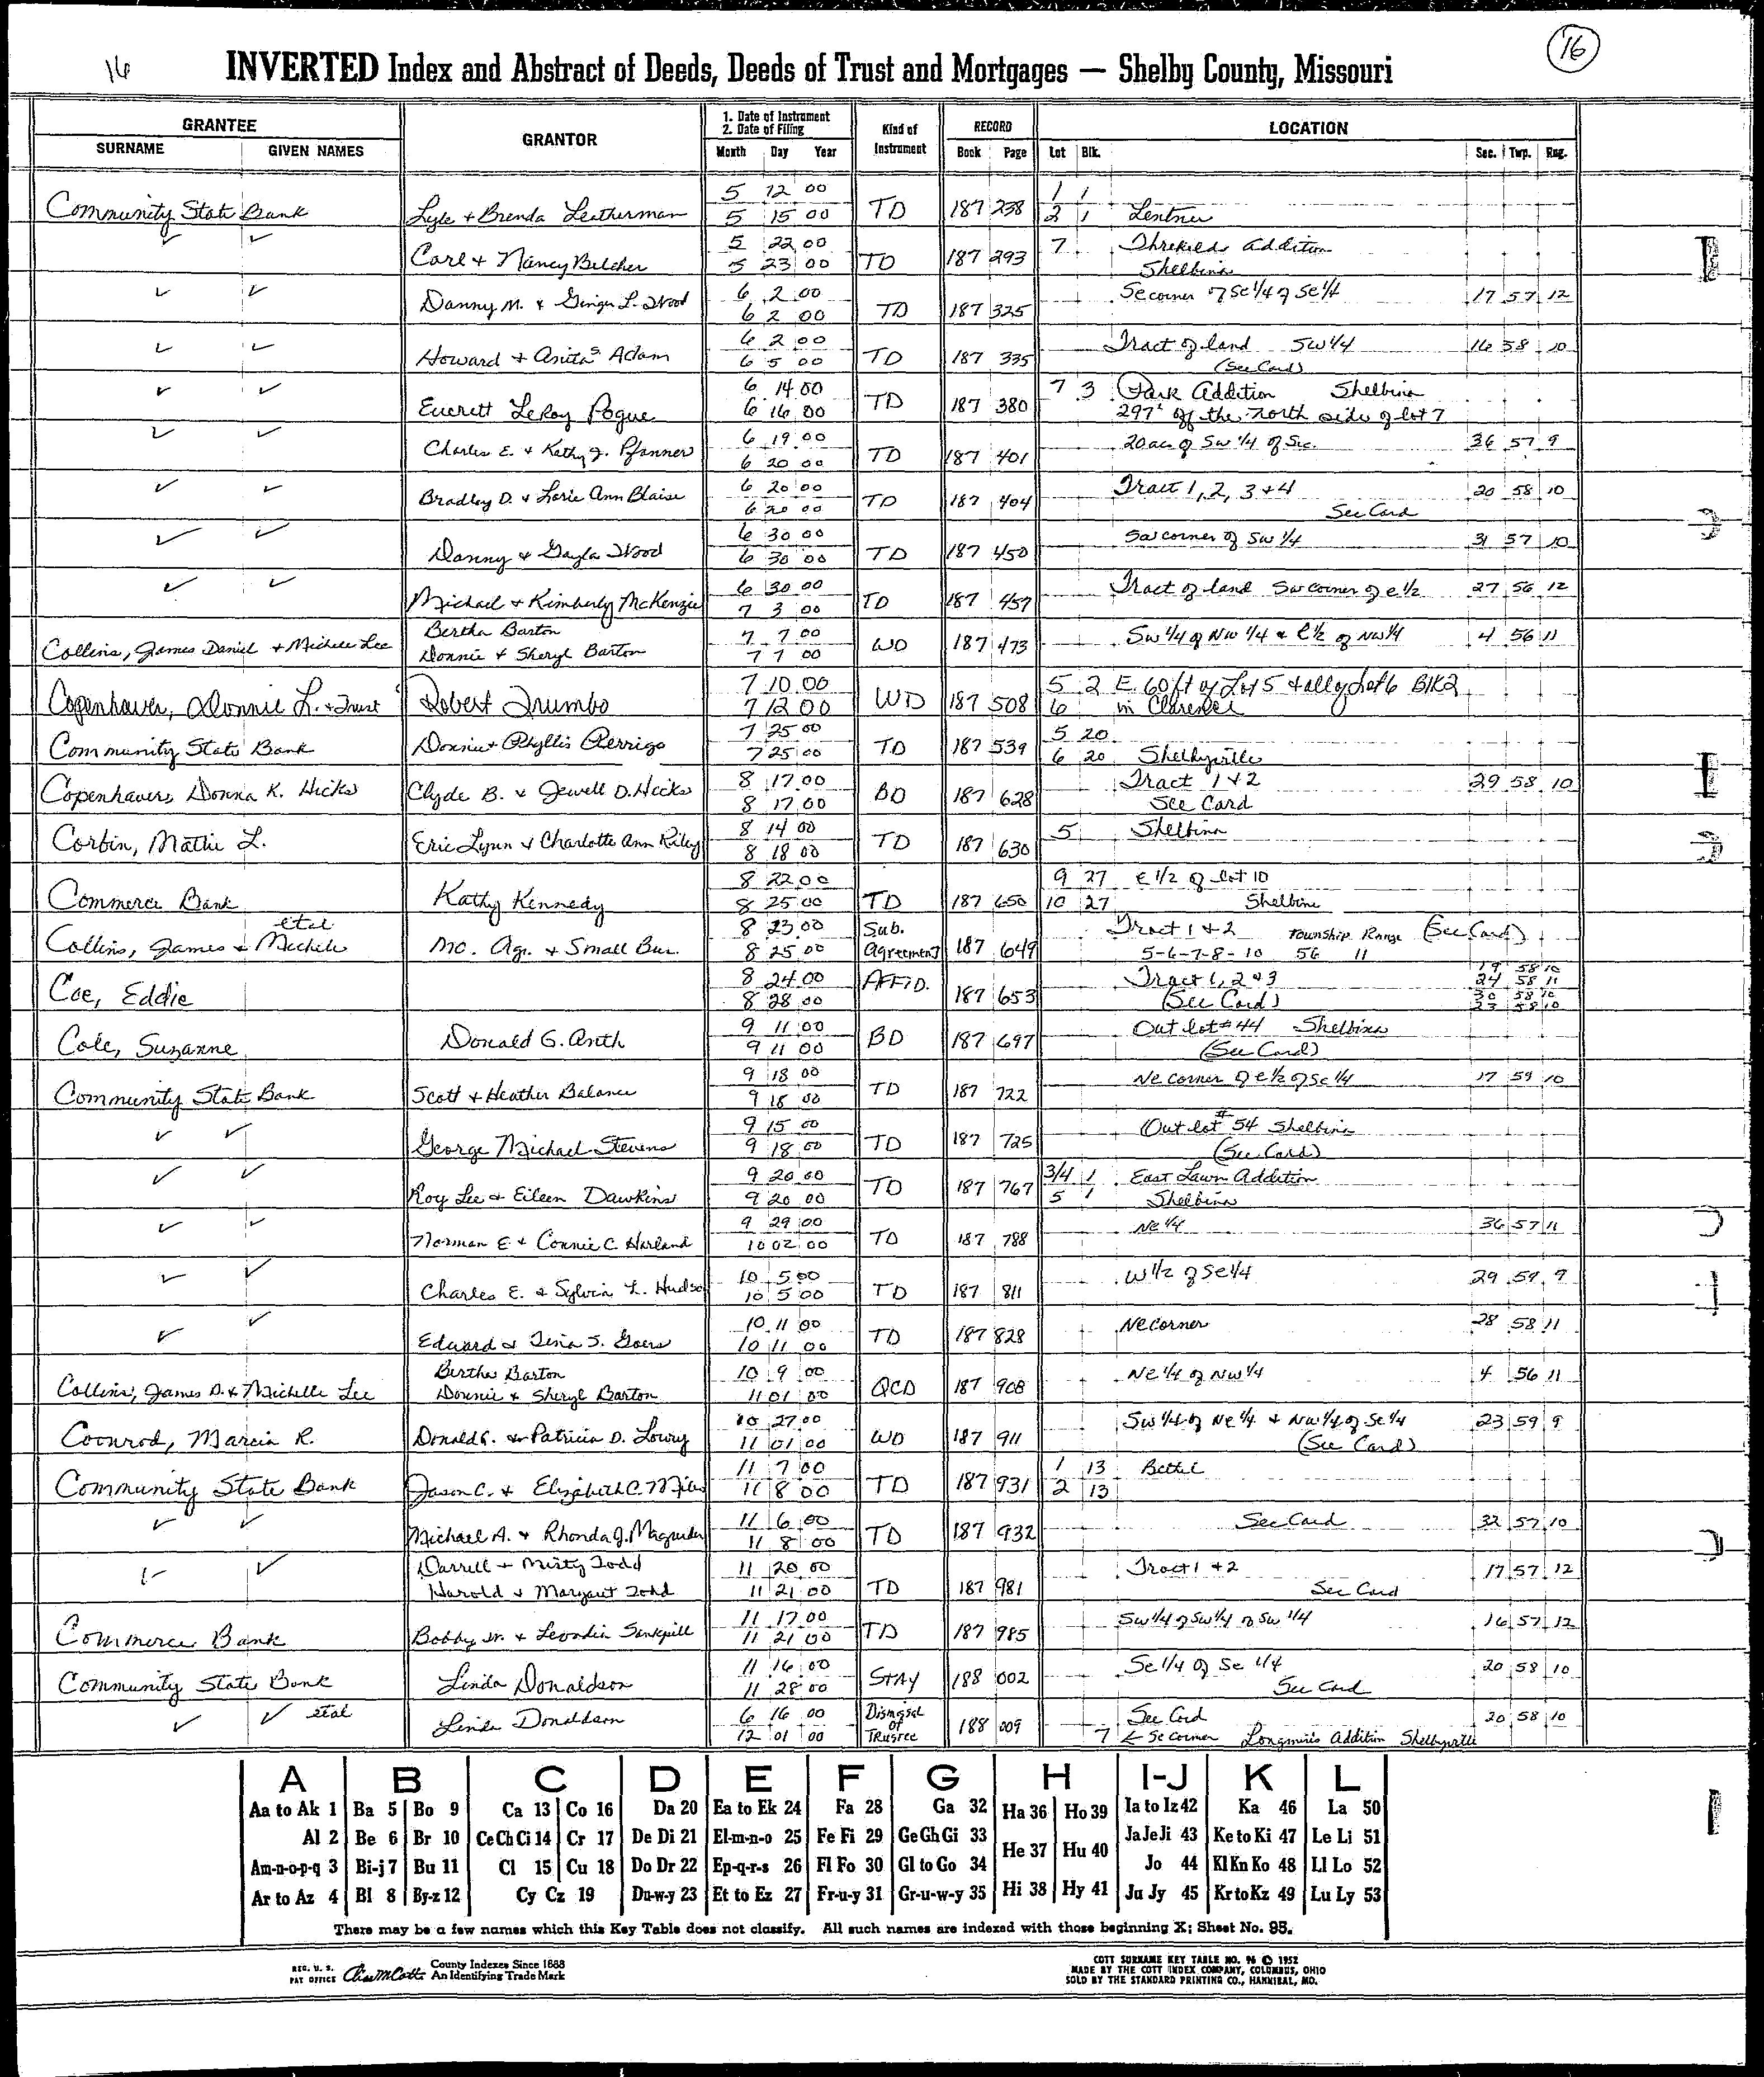 16
16
INVERTED Index and Abstract of Deeds, Deeds of Trust and Mortgages — Shelby County, Missouri
GRANTEE
SURNAME GIVEN NAMES
GRANTOR
1. Date of Instrument
2. Date of Filing
Month Day Year
Kind of Instrument
RECORD
Book Page
LOCATION
Lot Blk. Sec. Twp. Rng.
5 12 00 1 1
Community State Bank Lyle + Brenda Leatherman 5 15 00 TD 187 238 2 1 Lentner
✓ ✓ 5 22 00 7 Threlkelds addition
Carl + Nancy Belcher 5 23 00 TD 187 293 Shelbina
✓ ✓ Danny M. + Ginger L. Wood 6 2 00 Se corner of Se 1/4 of Se 1/4 17 57 12
6 2 00 TD 187 325
✓ ✓ 6 2 00 Tract of land SW 1/4 16 58 10
Howard + Anita S Adam 6 5 00 TD 187 335 (See Card)
✓ ✓ 6 14 00 7 3 Park Addition Shelbina
Everett LeRoy Pogue 6 16 00 TD 187 380 297' off the North side of lot 7
✓ ✓ 6 19 00 20 ac of SW 1/4 of Sec. 36 57 9
Charles E. + Kathy J. Pfanner 6 20 00 TD 187 401
✓ ✓ 6 20 00 Tract 1, 2, 3 + 4 20 58 10
Bradley D. + Lorie Ann Blaise 6 20 00 TD 187 404 See Card
✓ ✓ 6 30 00 Sw corner of SW 1/4 31 57 10
Danny + Gayla Wood 6 30 00 TD 187 450
✓ ✓ 6 30 00 Tract of land Sw corner of e 1/2 27 56 12
Michael + Kimberly McKenzie 7 3 00 TD 187 457
Bertha Barton 7 7 00 SW 1/4 of NW 1/4 & E 1/2 of NW 1/4 4 56 11
Collins, James Daniel + Michele Lee Donnie + Sheryl Barton 7 7 00 WD 187 473
7 10 00 5 2 E. 60 ft of Lot 5 + all of Lot 6 Blk 2
Copenhaver, Donnie L. + Trust Robert Trumbo 7 12 00 WD 187 508 6 in Clarence
7 25 00 5 20
Community State Bank Donnie + Phyllis Perrigo 7 25 00 TD 187 539 6 20 Shelbyville
8 17 00 Tract 1 + 2 29 58 10
Copenhaver, Donna K. Hicks Clyde B. + Jewell D. Hicks 8 17 00 BD 187 628 See Card
8 14 00 5 Shelbina
Corbin, Mathie L. Eric Lynn + Charlotte Ann Riley 8 18 00 TD 187 630
8 22 00 9 27 E 1/2 of lot 10
Commerce Bank Kathy Kennedy 8 25 00 TD 187 650 10 27 Shelbina
etal 8 23 00 Sub. Tract 1 + 2 Township Range (See Card)
Collins, James + Michele Mo. Agr. + Small Bus. 8 25 00 Agreement 187 649 5-6-7-8-10 56 11
8 24 00 AFFID. Tract 1, 2 + 3 19 58 10
24 58 11
Coe, Eddie 8 28 00 187 653 (See Card) 30 58 10
23 58 10
9 11 00 Out lot #44 Shelbina
Cole, Suzanne Donald G. Arth 9 11 00 BD 187 697 (See Card)
9 18 00 Ne corner of e 1/2 of Se 1/4 17 59 10
Community State Bank Scott + Heather Balance 9 18 00 TD 187 722
✓ ✓ 9 15 00 Out lot #54 Shelbina
George Michael Stevens 9 18 00 TD 187 725 (See Card)
✓ ✓ 9 20 00 3/4 1 East Lawn Addition
Roy Lee + Eileen Dawkins 9 20 00 TD 187 767 5 1 Shelbina
✓ ✓ 9 29 00 Ne 1/4 36 57 11
Norman E + Connie C. Harland 10 02 00 TD 187 788
✓ ✓ 10 5 00 W 1/2 of Se 1/4 29 59 9
Charles E. + Sylvia L. Hudson 10 5 00 TD 187 811
✓ ✓ 10 11 00 Ne corner 28 58 11
Edward + Tina S. Goers 10 11 00 TD 187 828
Bertha Barton 10 9 00 Ne 1/4 of NW 1/4 4 56 11
Collins, James D. + Michelle Lee Donnie + Sheryl Barton 11 01 00 QCD 187 908
10 27 00 SW 1/4 of Ne 1/4 + NW 1/4 of Se 1/4 23 59 9
Coonrod, Marcia R. Donald G. + Patricia D. Lowry 11 01 00 WD 187 911 (See Card)
11 7 00 1 13 Bethel
Community State Bank Jason C. + Elizabeth C. Miles 11 8 00 TD 187 931 2 13
✓ ✓ 11 6 00 See Card 32 57 10
Michael A. + Rhonda J. Magruder 11 8 00 TD 187 932
✓ ✓ Darrell + Misty Todd 11 20 00 Tract 1 + 2 17 57 12
Harold + Margaret Todd 11 21 00 TD 187 981 See Card
11 17 00 SW 1/4 of SW 1/4 of SW 1/4 16 57 12
Commerce Bank Bobby Jr. + Leondia 11 21 00 TD 187 985
11 16 00 Se 1/4 of Se 1/4 20 58 10
Community State Bank Linda Donaldson 11 28 00 STAY 188 002 See Card
✓ ✓ etal Linda Donaldson 6 16 00 Dismissal of Trustee 188 009 See Card 20 58 10
12 01 00 7 ← Se corner Longmire's Addition Shelbyville
A B C D E F G H I-J K L
Aa to Ak 1 Ba 5 Bo 9 Ca 13 Co 16 Da 20 Ea to Ek 24 Fa 28 Ga 32 Ha 36 Ho 39 Ia to Iz 42 Ka 46 La 50
Al 2 Be 6 Br 10 Ce Ch Ci 14 Cr 17 De Di 21 El-m-n-o 25 Fe Fi 29 Ge Gh Gi 33 He 37 Hu 40 Ja Je Ji 43 Ke to Ki 47 Le Li 51
Am-n-o-p-q 3 Bi-j 7 Bu 11 Cl 15 Cu 18 Do Dr 22 Ep-q-r-s 26 Fl Fo 30 Gl to Go 34 Jo 44 Kl Kn Ko 48 Ll Lo 52
Ar to Az 4 Bl 8 By-z 12 Cy Cz 19 Du-w-y 23 Et to Ez 27 Fr-u-y 31 Gr-u-w-y 35 Hi 38 Hy 41 Ju Jy 45 Kr to Kz 49 Lu Ly 53
There may be a few names which this Key Table does not classify. All such names are indexed with those beginning X; Sheet No. 95.
REG. U. S. PAT OFFICE
County Indexes Since 1888
An Identifying Trade Mark
COTT SURNAME KEY TABLE NO. 96 © 1952
MADE BY THE COTT INDEX COMPANY, COLUMBUS, OHIO
SOLD BY THE STANDARD PRINTING CO., HANNIBAL, MO.